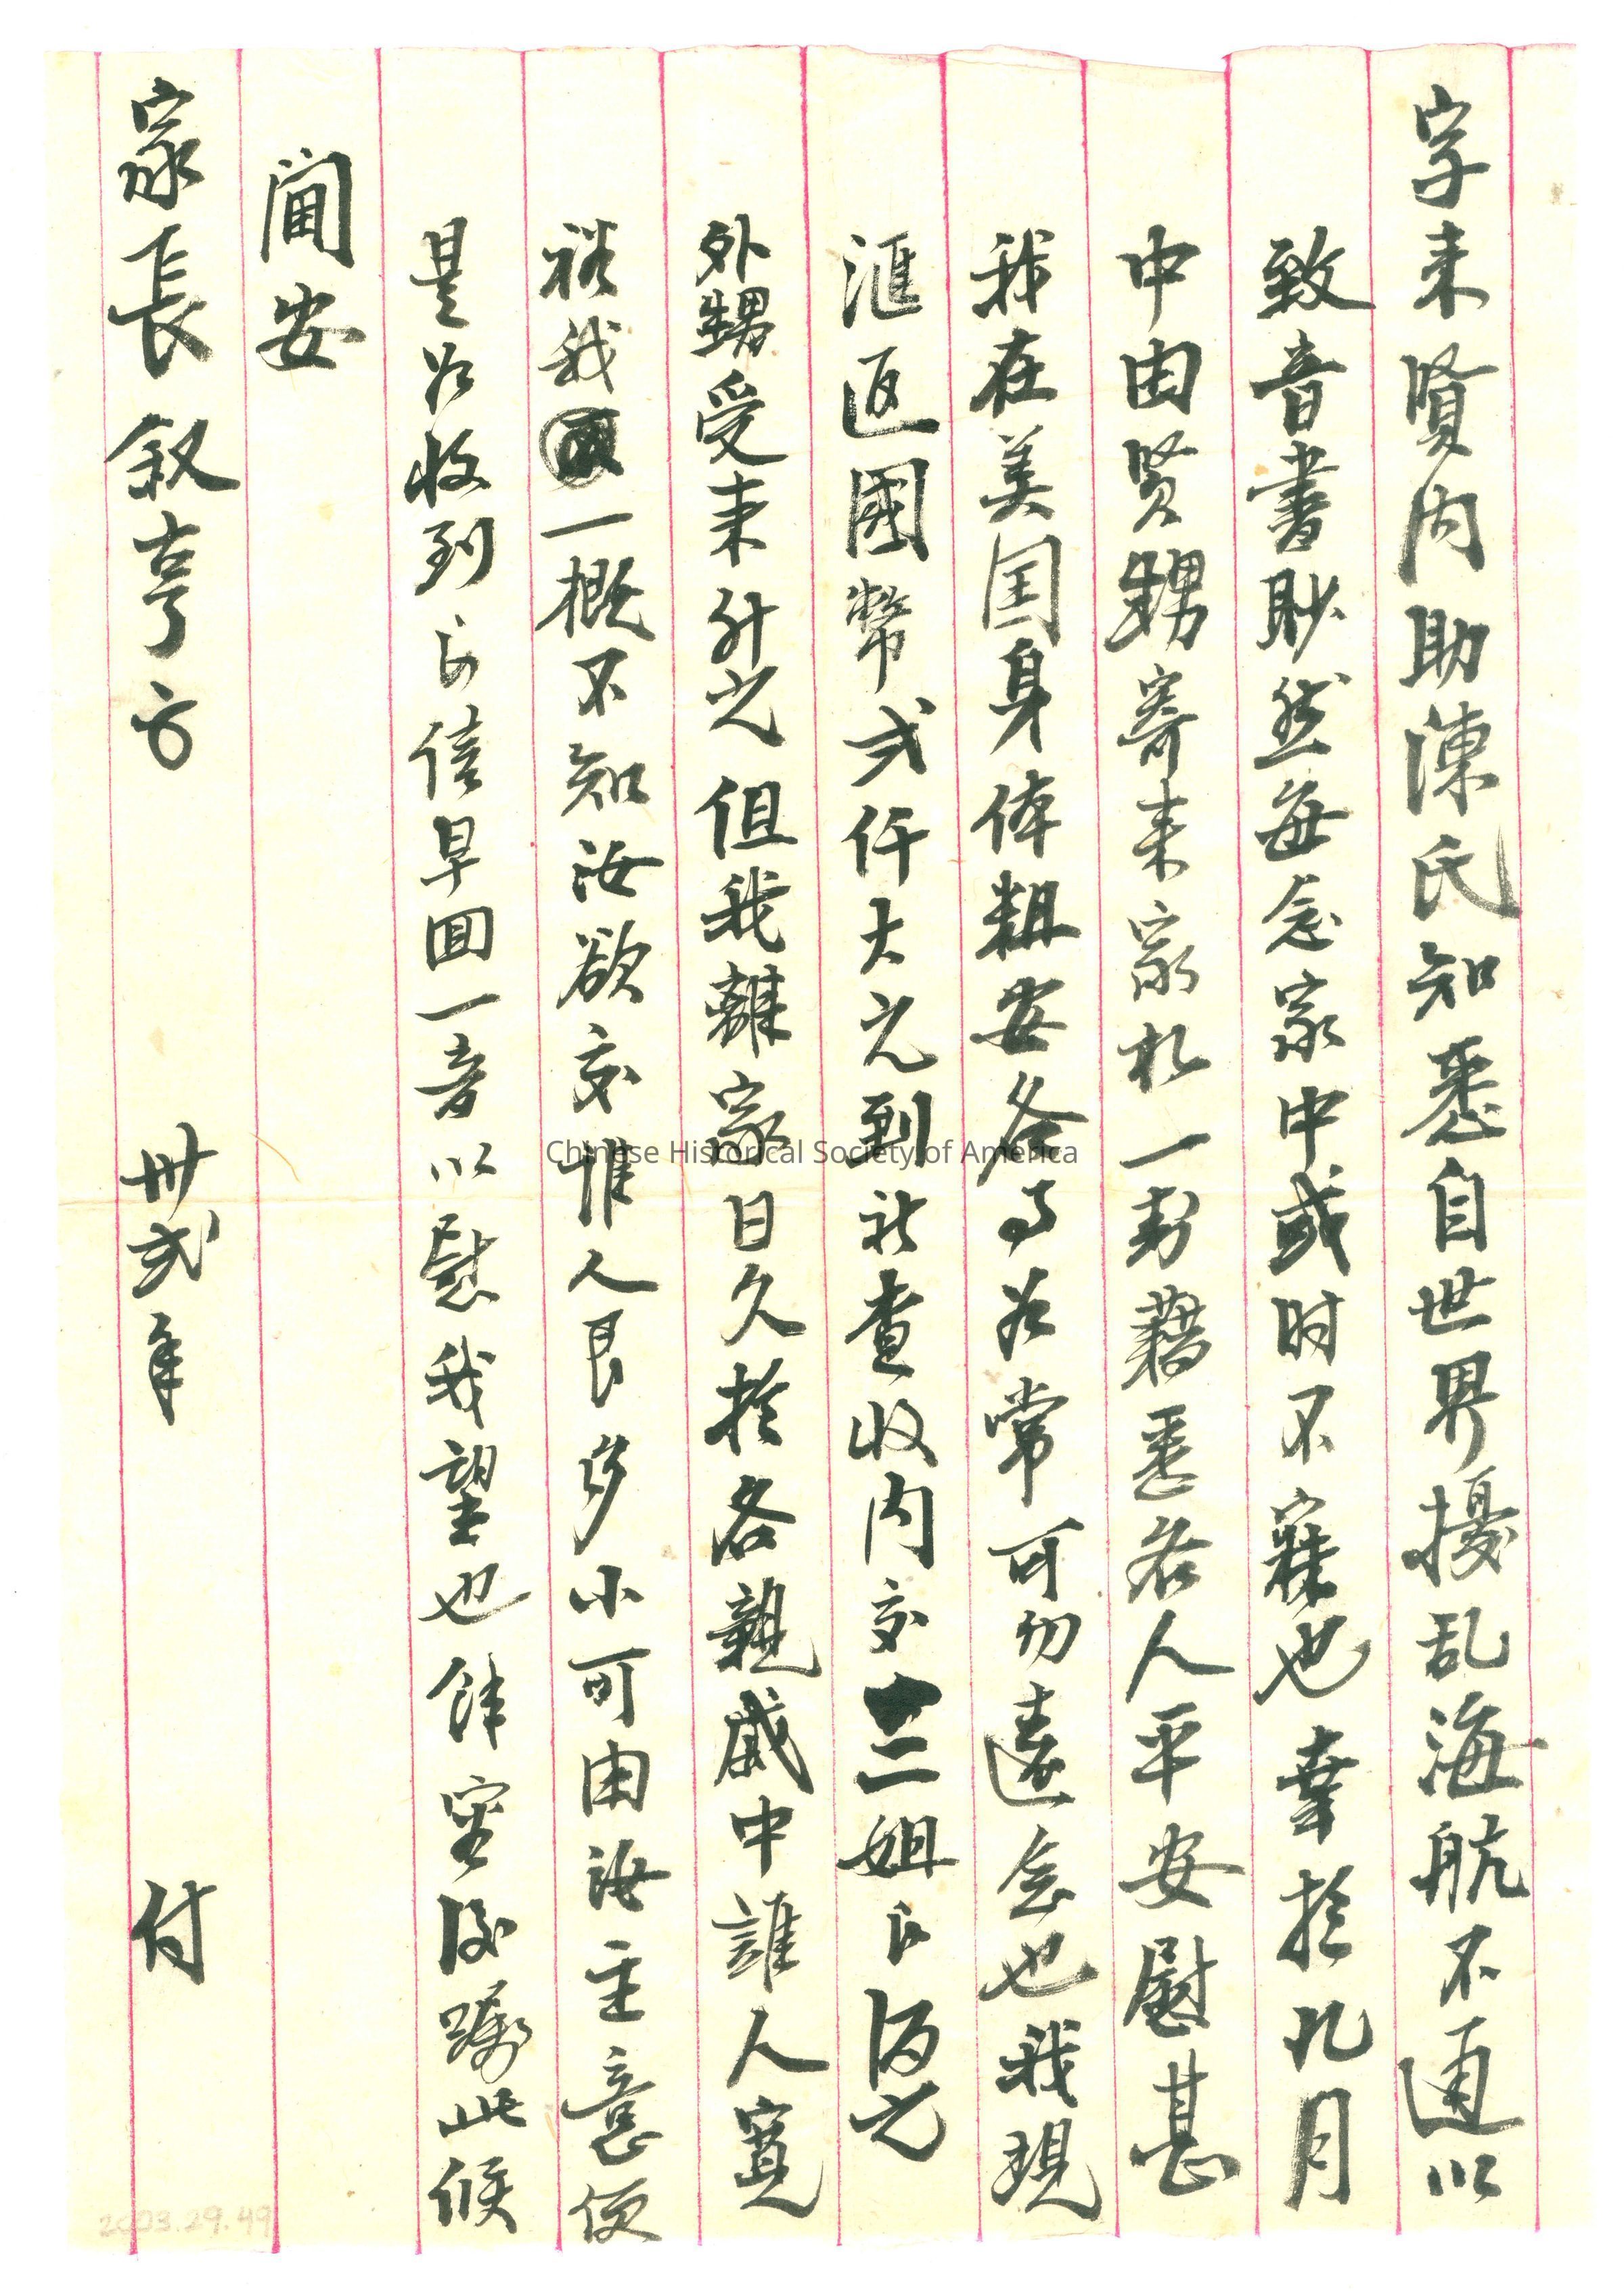 字来賢内助陳氏知悉自世界擾乱海航不通以
致音書眇然每念家中或时不寐也幸於九月
中由贤甥寄来家札一封藉悉各人平安慰甚
我在美国身体粗安各事如常可勿遠念也我現
滙返國幣弍仟大元到祈查收内交二姐艮伍元
外甥受来什元但我離家日久於各親戚中誰人寬
裕我一概不知汝欲交誰人艮多小可由汝主意便
是如收到艮信早回一音以慰我望也餘容後嘱此候
闔安
家長叙亨方 卅弍年 付
Chinese Historical Society of America
2003.29.49